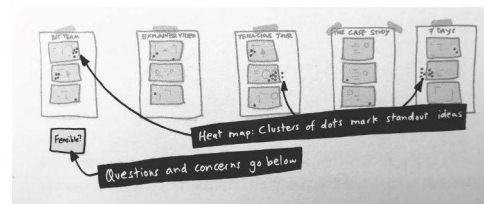 BOT TEAM
EXPANDED VIDEO
TENACIOUS TOUR
THE CASE STUDY
7 DAYS
Heat map: Clusters of dots mark standout ideas
Feasible?
Questions and concerns go below